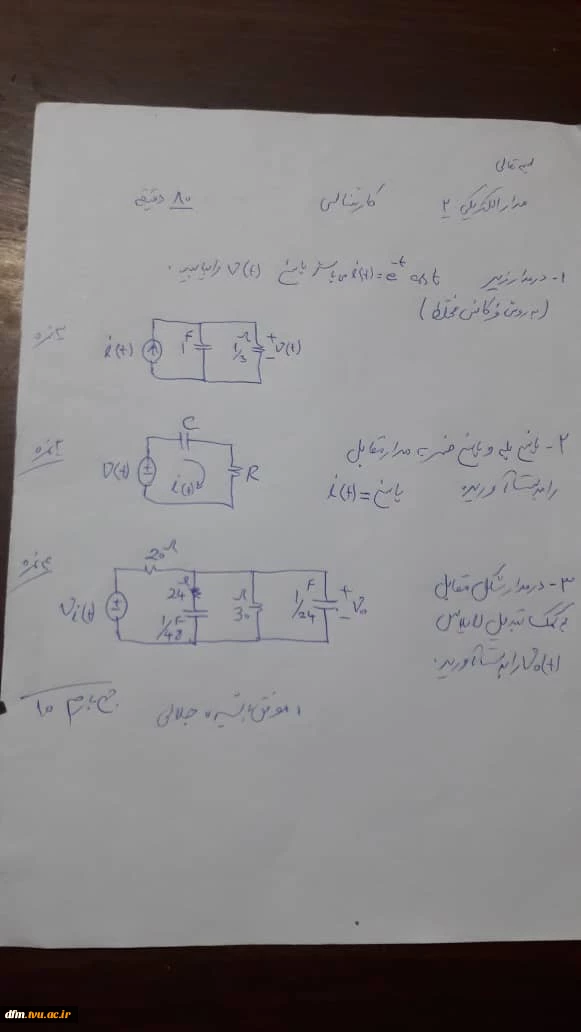 بسمه تعالی
مدار الکتریکی ۲ کارشناسی ۸۰ دقیقه
۱- در مدار زیر i(t) = e^-t cos t پاسخ v(t) را بیابید.
(به روش فرکانس مختلط)
۲ نمره
i(t) 1F 1/3 Ω + v(t) -
۲- پاسخ پله و پاسخ ضربه مدار مقابل
را بدست آورید. پاسخ = i(t)
۲ نمره
v(t) C i(t) R
۳- در مدار شکل مقابل
به کمک تبدیل لاپلاس
Vo(t) را بدست آورید.
نمره
Vi(t) 20Ω 24Ω 1/48 F 30Ω 1/24 F + Vo -
موفق باشید جلالی
جمع بارم ۱۰
dfm.tvu.ac.ir